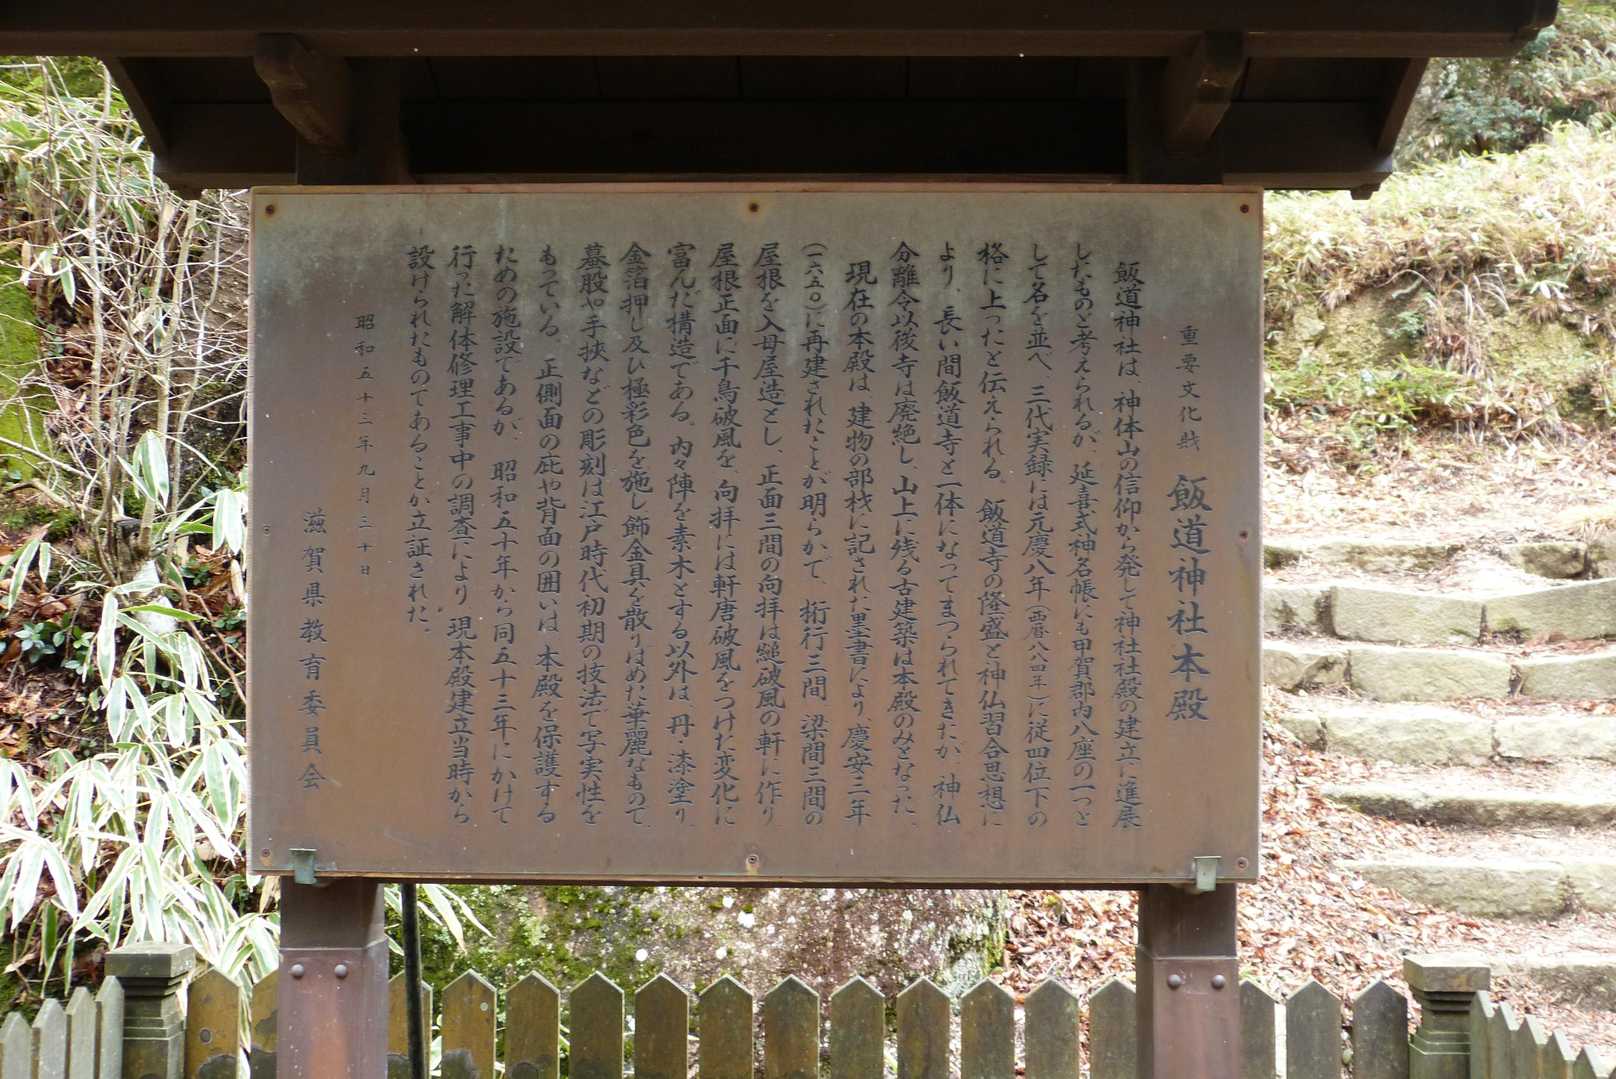 重要文化財 飯道神社本殿
飯道神社は、神体山の信仰から発して神社社殿の建立に進展
したものと考えられるが、延喜式神名帳にも甲賀郡内八座の一つと
して名を並べ、三代実録には元慶八年(西暦八八四年)に従四位下の
格に上ったと伝えられる。飯道寺の隆盛と神仏習合思想に
より、長い間飯道寺と一体になってまつられてきたが、神仏
分離令以後寺は廃絶し、山上に残る古建築は本殿のみとなった、
現在の本殿は、建物の部材に記された墨書により、慶安三年
(一六五〇)に再建されたことが明らかで、桁行三間、梁間三間の
屋根を入母屋造とし、正面三間の向拝は縋破風の軒に作り、
屋根正面に千鳥破風を、向拝には軒唐破風をつけた変化に
富んだ構造である。内々陣を素木とする以外は、丹、漆塗り、
金箔押し及び極彩色を施し飾金具を散りばめた華麗なもので、
蟇股や手挟などの彫刻は江戸時代初期の技法で写実性を
もっている。正側面の庇や背面の囲いは、本殿を保護する
ための施設であるが、昭和五十年から同五十三年にかけて
行った解体修理工事中の調査により、現本殿建立当時から
設けられたものであることが立証された。
昭和五十三年九月三十日
滋賀県教育委員会